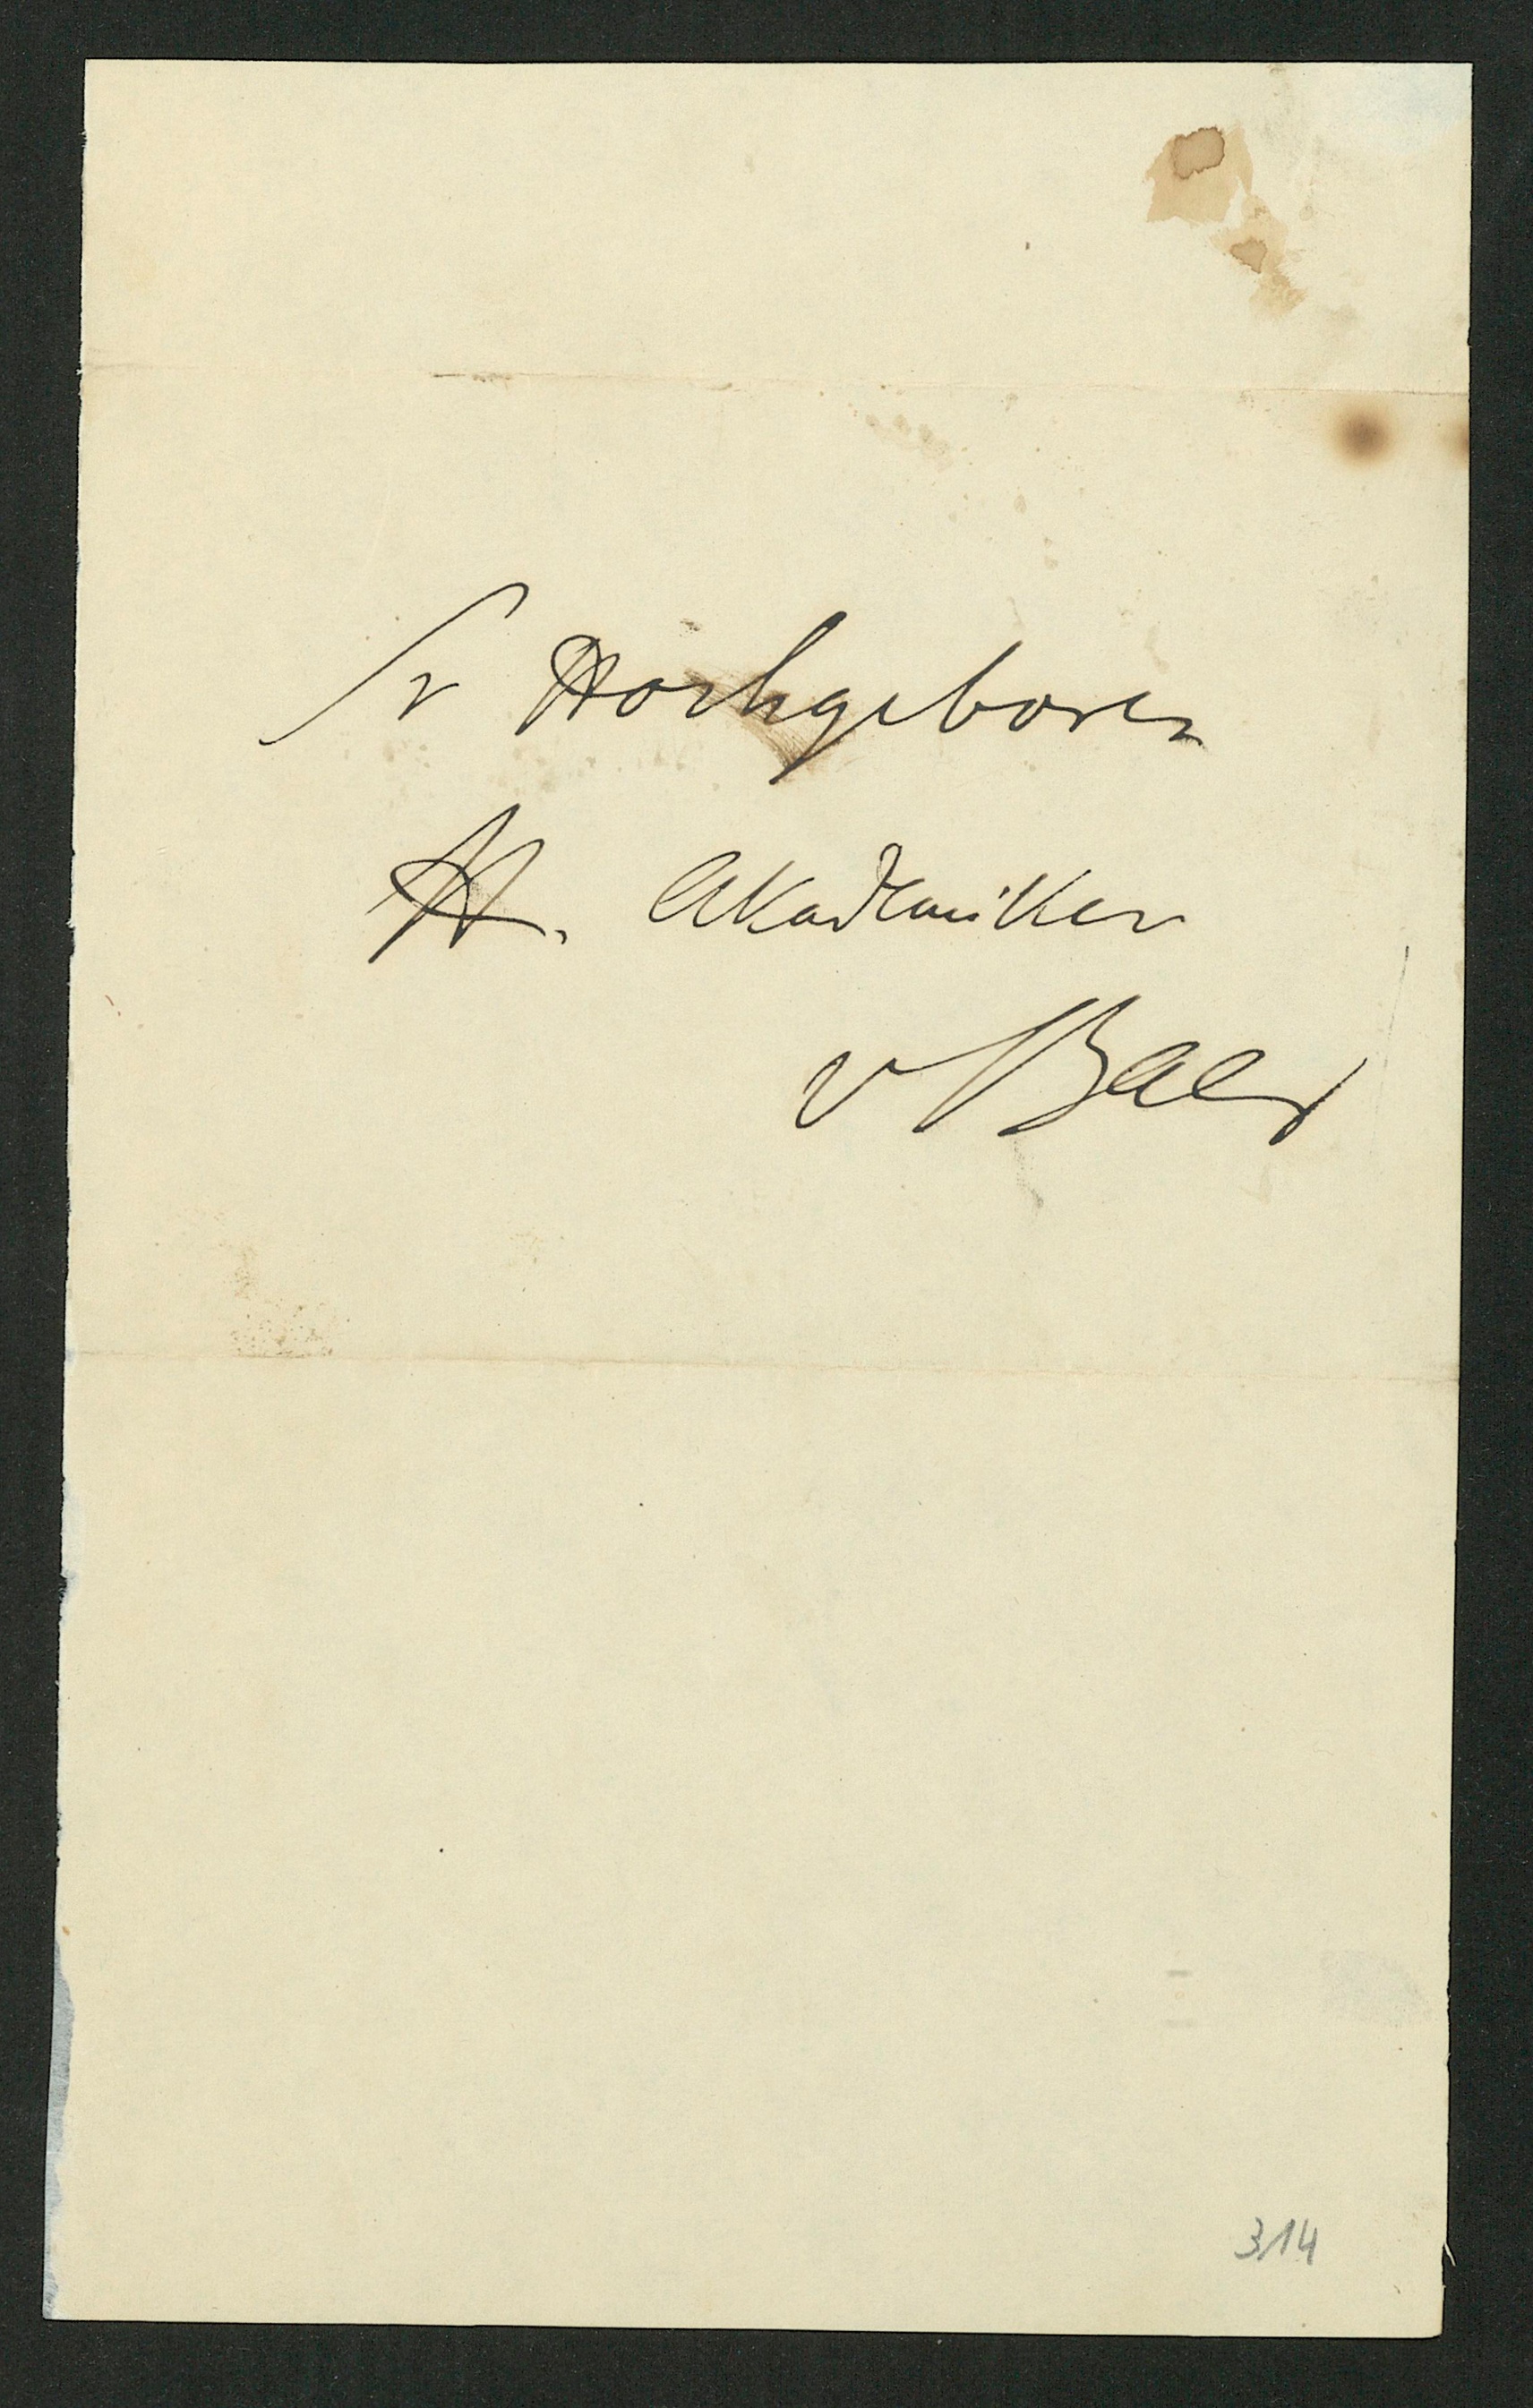 Sr Hochgeboren
H. Akademiker
v Baer
314